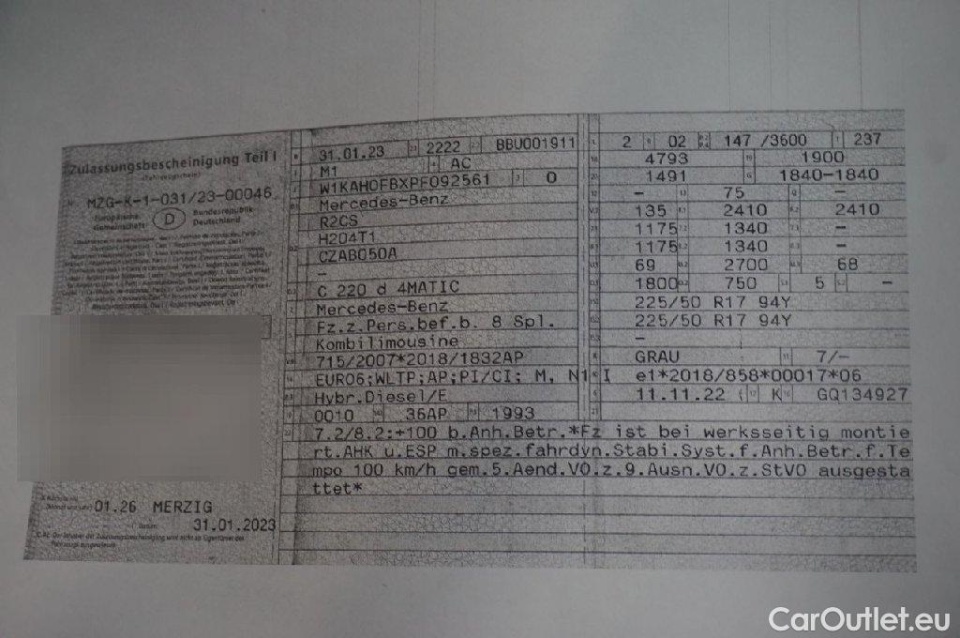 Zulassungsbescheinigung Teil I
(Fahrzeugschein)
Nr. MZG-K-1-031/23-00046
Europäische Gemeinschaft D Bundesrepublik Deutschland
01.26 MERZIG
31.01.2023
31.01.23 2222 BBU001911
M1 AC
W1KAH0FBXPF092561 0
Mercedes-Benz
R2CS
H204T1
CZAB050A
–
C 220 d 4MATIC
Mercedes-Benz
Fz.z.Pers.bef.b. 8 Spl.
Kombilimousine
715/2007*2018/1832AP
EURO6;WLTP;AP;PI/CI; M, N1 I
Hybr.Diesel/E
0010 36AP 1993
2 02 147 /3600 237
4793 1900
1491 1840-1840
– 75 –
135 2410 2410
1175 1340 –
1175 1340 –
69 2700 68
1800 750 5 –
225/50 R17 94Y
225/50 R17 94Y
–
GRAU 7/–
e1*2018/858*00017*06
11.11.22 K GQ134927
7.2/8.2:+100 b.Anh.Betr.*Fz ist bei werksseitig montie
rt.AHK u.ESP m.spez.fahrdyn.Stabi.Syst.f.Anh.Betr.f.Te
mpo 100 km/h gem.5.Aend.VO.z.9.Ausn.VO.z.StVO ausgesta
ttet*
CarOutlet.eu